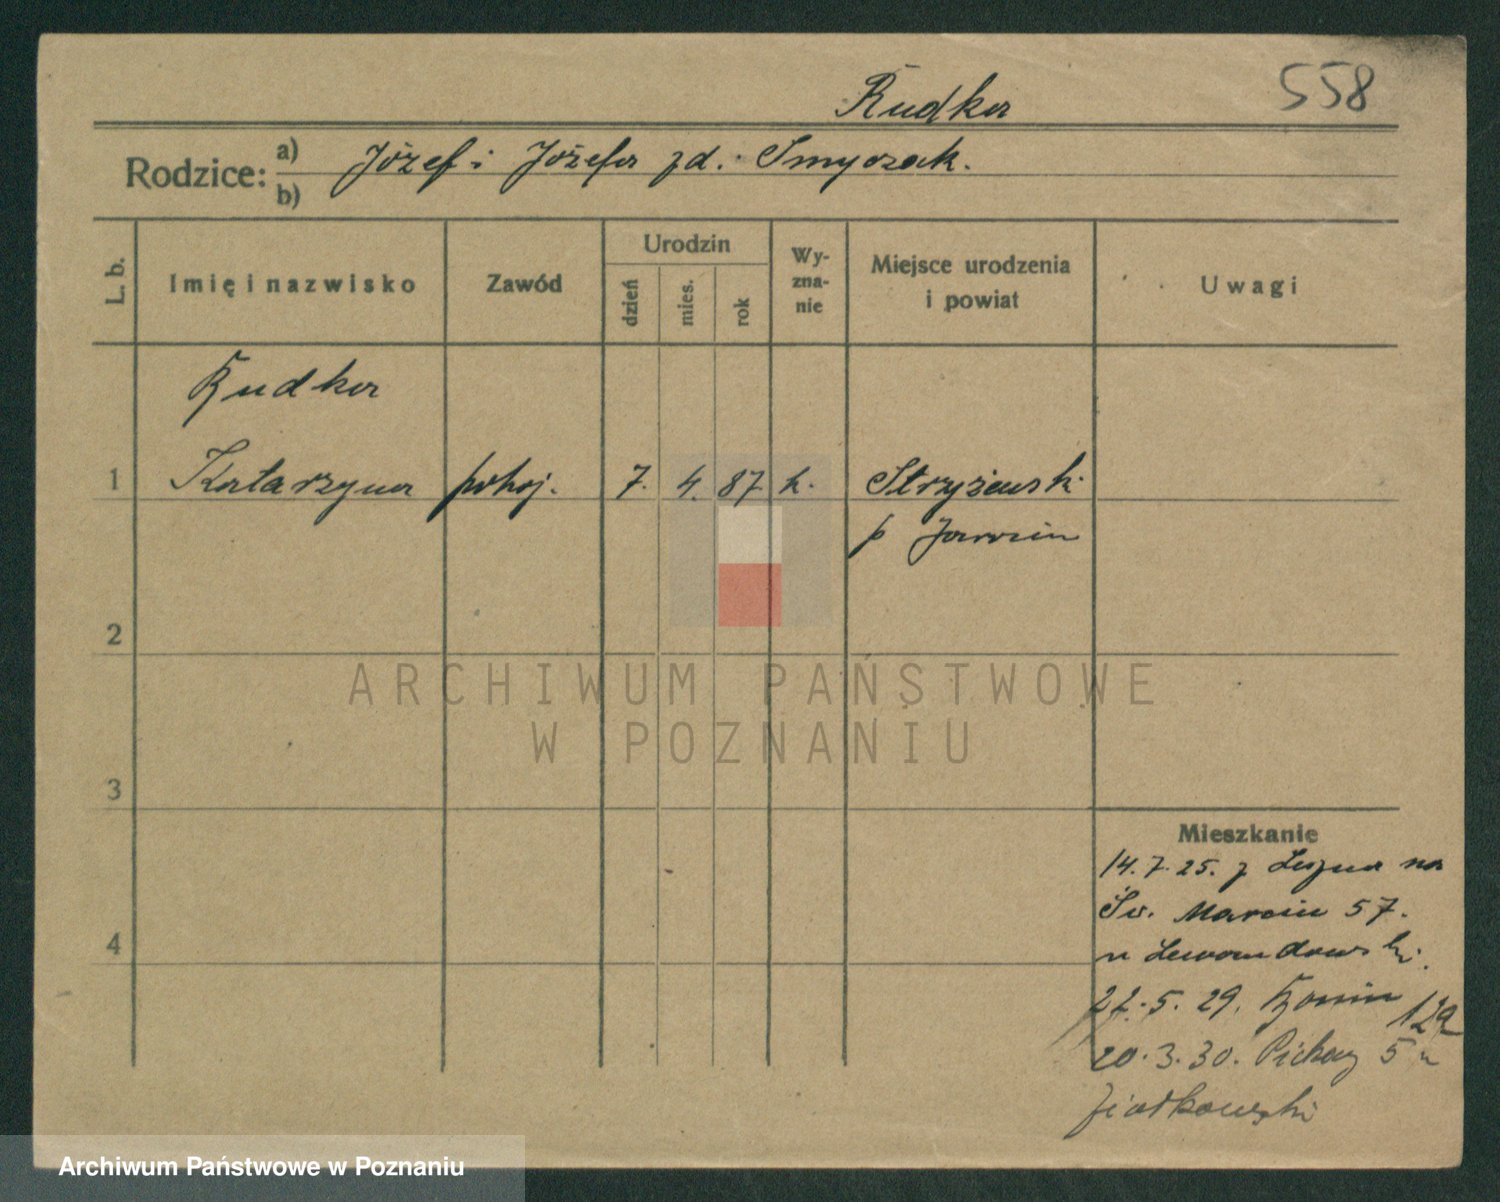 558
Rudka
Rodzice: a) b) Józef i Józefa zd. Smyczak.
L. b.
Imię i nazwisko
Zawód
Urodzin
dzień
mies.
rok
Wy-
zna-
nie
Miejsce urodzenia
i powiat
Uwagi
Rudka
1 Katarzyna pokoj. 7. 4. 87 k. Strzyżewski
p Jarocin
2
3
4
ARCHIWUM PAŃSTWOWE
W POZNANIU
Mieszkanie
14.7.25. z Leszna na
Św. Marcin 57.
u Lewandowski.
27.5.29.
20.3.30. 5 u
Ziołkowski
Archiwum Państwowe w Poznaniu